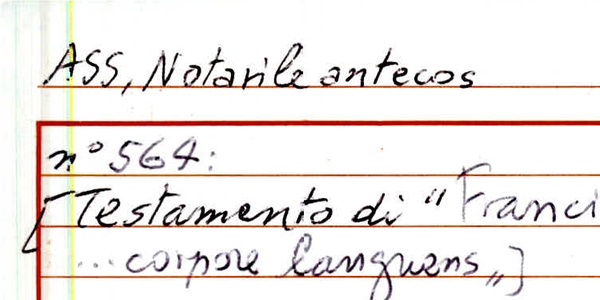 ASS, Notarile antecos
n° 564:
[Testamento di "Franci
... corpore languens"]